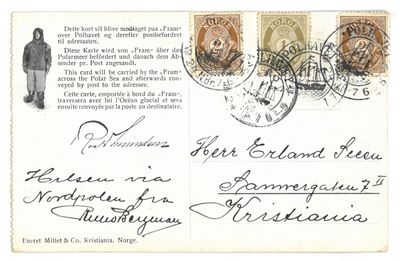 Dette kort vil blive modtaget paa „Fram“
over Polhavet og derefter postbefordret
til adressaten.
Diese Karte wird von „Fram“ über das
Polarmeer befördert und danach dem Ab-
sender pr. Post zugesandt.
This card will be carried by the „Fram“
across the Polar Sea and afterwards con-
veyed by post to the adressee.
Cette carte, emportée à bord du „Fram“,
traversera avec lui l'Océan glacial et sera
ensuite renvoyée par la poste au destinataire.
NORGE
POLHAVET
Hilsen via
Nordpolen fra
Herr Erland
Kristiania
Eneret Mittet & Co. Kristiania, Norge.